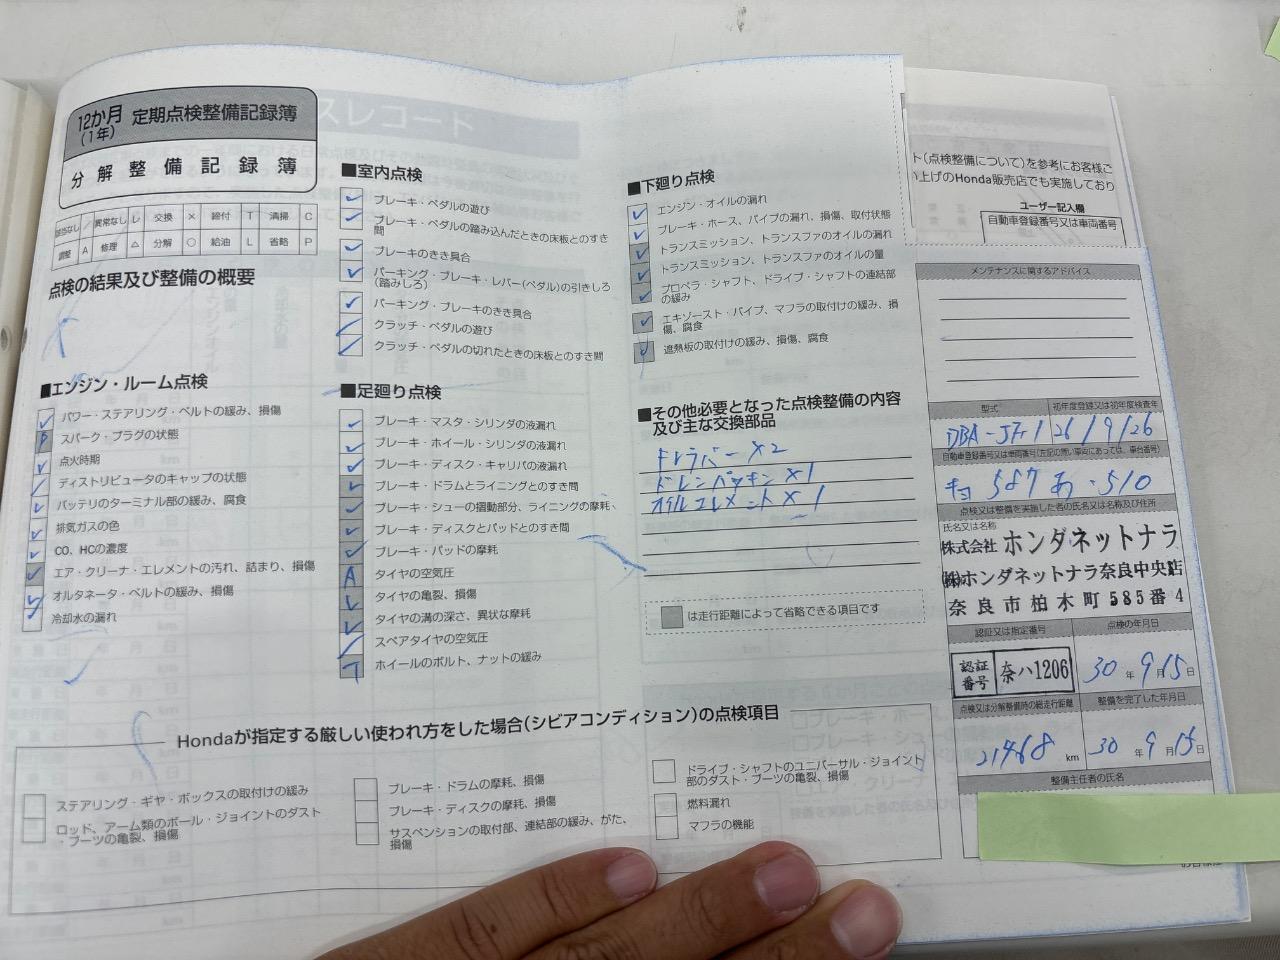 12か月
(1年)
定期点検整備記録簿
分解整備記録簿
該当なし ／ 異常なし レ 交換 × 締付 T 清掃 C
調整 A 修理 △ 分解 ○ 給油 L 省略 P
点検の結果及び整備の概要
■エンジン・ルーム点検
パワー・ステアリング・ベルトの緩み、損傷
P スパーク・プラグの状態
点火時期
ディストリビュータのキャップの状態
バッテリのターミナル部の緩み、腐食
排気ガスの色
CO、HCの濃度
エア・クリーナ・エレメントの汚れ、詰まり、損傷
オルタネータ・ベルトの緩み、損傷
冷却水の漏れ
■室内点検
ブレーキ・ペダルの遊び
ブレーキ・ペダルの踏み込んだときの床板とのすき
間
ブレーキのきき具合
パーキング・ブレーキ・レバー(ペダル)の引きしろ
(踏みしろ)
パーキング・ブレーキのきき具合
クラッチ・ペダルの遊び
クラッチ・ペダルの切れたときの床板とのすき間
■足廻り点検
ブレーキ・マスタ・シリンダの液漏れ
ブレーキ・ホイール・シリンダの液漏れ
ブレーキ・ディスク・キャリパの液漏れ
ブレーキ・ドラムとライニングとのすき間
ブレーキ・シューの摺動部分、ライニングの摩耗
ブレーキ・ディスクとパッドとのすき間
ブレーキ・パッドの摩耗
A タイヤの空気圧
タイヤの亀裂、損傷
タイヤの溝の深さ、異状な摩耗
スペアタイヤの空気圧
T ホイールのボルト、ナットの緩み
■下廻り点検
エンジン・オイルの漏れ
ブレーキ・ホース、パイプの漏れ、損傷、取付状態
トランスミッション、トランスファのオイルの漏れ
トランスミッション、トランスファのオイルの量
プロペラ・シャフト、ドライブ・シャフトの連結部
の緩み
エキゾースト・パイプ、マフラの取付けの緩み、損
傷、腐食
遮熱板の取付けの緩み、損傷、腐食
■その他必要となった点検整備の内容
及び主な交換部品
ドレンパッキン×1
オイルエレメント×1
は走行距離によって省略できる項目です
Hondaが指定する厳しい使われ方をした場合(シビアコンディション)の点検項目
ステアリング・ギヤ・ボックスの取付けの緩み
ロッド、アーム類のボール・ジョイントのダスト
・ブーツの亀裂、損傷
ブレーキ・ドラムの摩耗、損傷
ブレーキ・ディスクの摩耗、損傷
サスペンションの取付部、連結部の緩み、がた、
損傷
ドライブ・シャフトのユニバーサル・ジョイント
部のダスト・ブーツの亀裂、損傷
燃料漏れ
マフラの機能
ト(点検整備について)を参考にお客様ご
い上げのHonda販売店でも実施しており
ユーザー記入欄
自動車登録番号又は車両番号
メンテナンスに関するアドバイス
型式 初年度登録又は初年度検査年
DBA-JF1 26/9/26
587 あ・510
点検又は整備を実施した者の氏名又は名称及び住所
氏名又は名称
株式会社 ホンダネットナラ
㈱ホンダネットナラ奈良中央店
奈良市柏木町585番4
認証又は指定番号 点検の年月日
認証
番号 奈ハ1206
30年9月15日
点検又は分解整備時の総走行距離 整備を完了した年月日
21468 km 30年9月15日
整備主任者の氏名